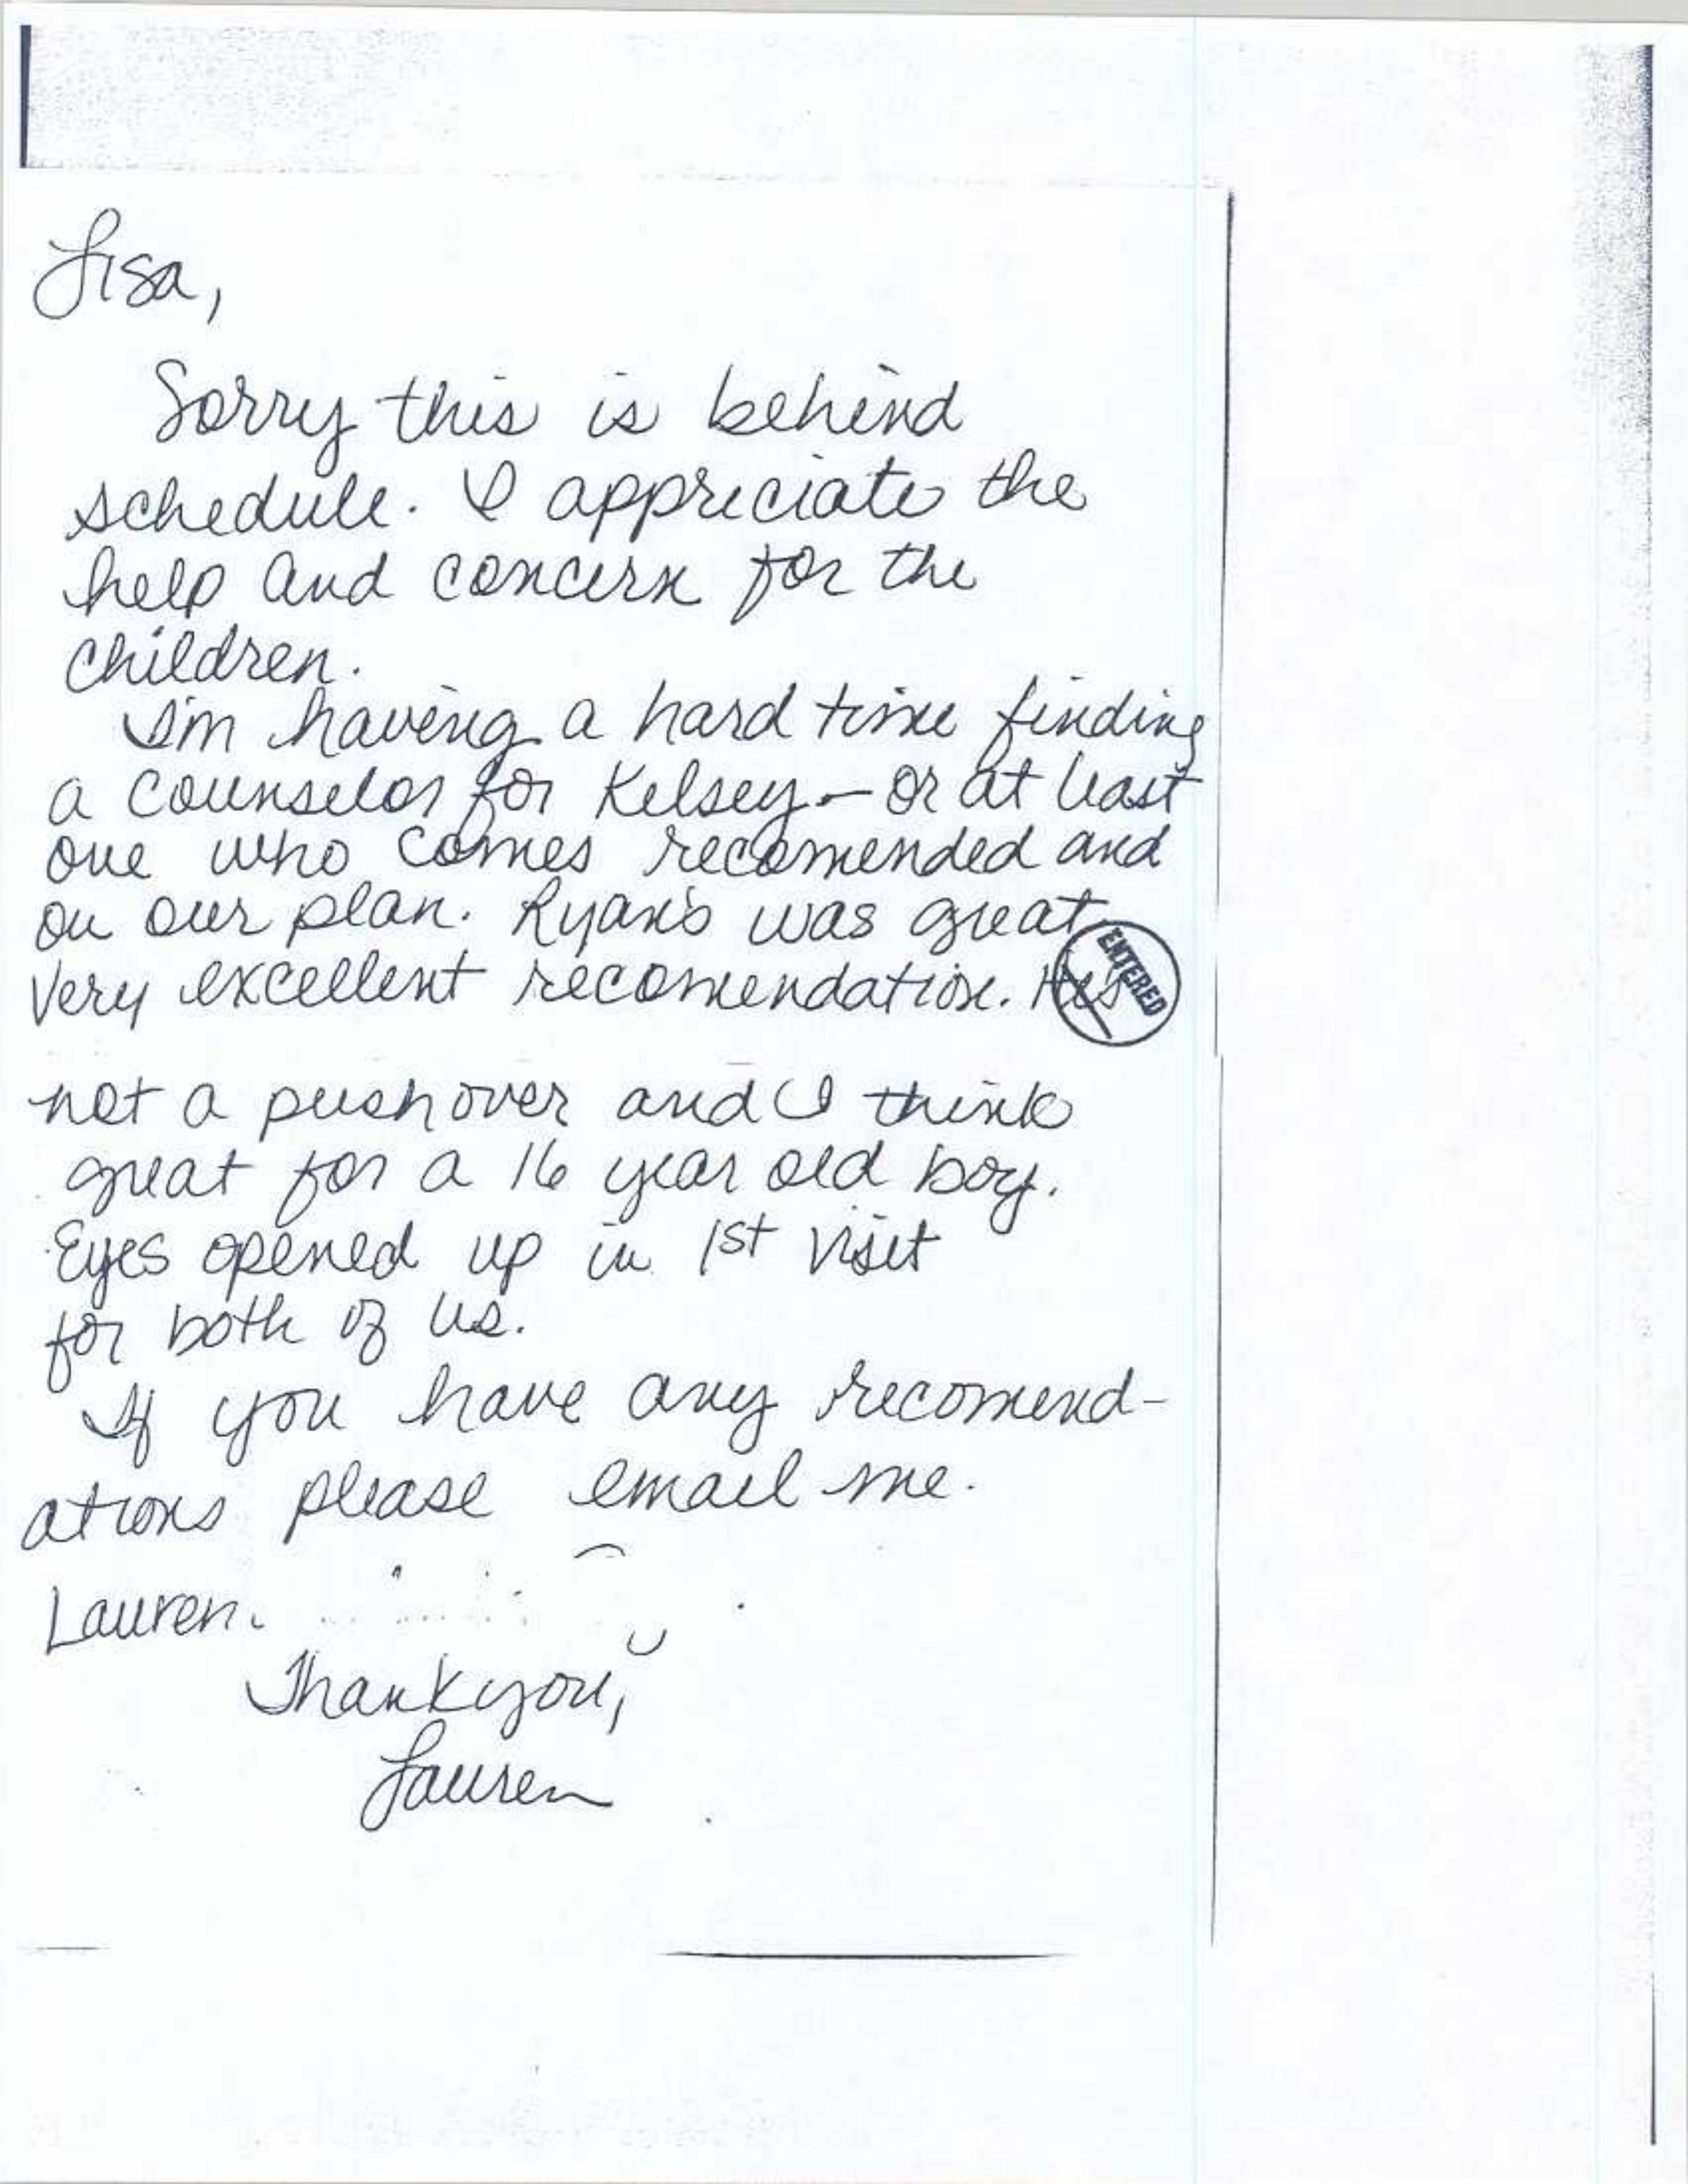 Lisa,
Sorry this is behind
schedule. I appreciate the
help and concern for the
children.
I'm having a hard time finding
a counselor for Kelsey - or at least
one who comes recomended and
on our plan. Ryan's was great
Very excellent recomendation. He's
ENTERED
not a pushover and I think
great for a 16 year old boy.
Eyes opened up in 1st visit
for both of us.
If you have any recomend-
ations please email me.
Lauren.
Thank you,
Lauren